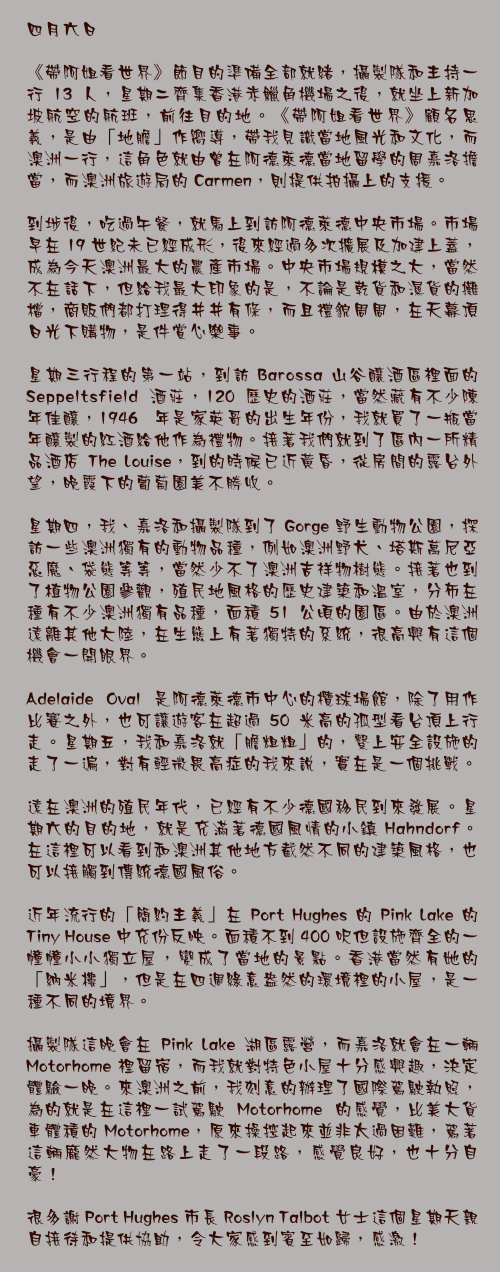 四月六日
《帶阿姐看世界》節目的準備全部就緒，攝製隊和主持一
行 13 人，星期二齊集香港赤鱲角機場之後，就坐上新加
坡航空的航班，前往目的地。《帶阿姐看世界》顧名思
義，是由「地膽」作嚮導，帶我見識當地風光和文化，而
澳洲一行，這角色就由曾在阿德萊德當地留學的周嘉洛擔
當，而澳洲旅遊局的 Carmen，則提供拍攝上的支援。
到埗後，吃過午餐，就馬上到訪阿德萊德中央市場。市場
早在 19 世紀末已經成形，後來經過多次擴展及加建上蓋，
成為今天澳洲最大的農產市場。中央市場規模之大，當然
不在話下，但給我最大印象的是，不論是乾貨和濕貨的攤
檔，商販們都打理得井井有條，而且禮貌周周，在天幕頂
日光下購物，是件賞心樂事。
星期三行程的第一站，到訪 Barossa 山谷釀酒區裡面的
Seppeltsfield 酒莊，120 歷史的酒莊，當然藏有不少陳
年佳釀，1946 年是家英哥的出生年份，我就買了一瓶當
年釀製的紅酒給他作為禮物。接著我們就到了區內一所精
品酒店 The Louise，到的時候已近黃昏，從房間的露台外
望，晚霞下的葡萄園美不勝收。
星期四，我、嘉洛和攝製隊到了 Gorge 野生動物公園，探
訪一些澳洲獨有的動物品種，例如澳洲野犬、塔斯萬尼亞
惡魔、袋熊等等，當然少不了澳洲吉祥物樹熊。接著也到
了植物公園參觀，殖民地風格的歷史建築和溫室，分布在
種有不少澳洲獨有品種，面積 51 公頃的園區。由於澳洲
遠離其他大陸，在生態上有著獨特的系統，很高興有這個
機會一開眼界。
Adelaide Oval 是阿德萊德市中心的欖球場館，除了用作
比賽之外，也可讓遊客在超過 50 米高的弧型看台頂上行
走。星期五，我和嘉洛就「膽粗粗」的，繫上安全設施的
走了一遍，對有輕微畏高症的我來說，實在是一個挑戰。
遠在澳洲的殖民年代，已經有不少德國移民到來發展。星
期六的目的地，就是充滿著德國風情的小鎮 Hahndorf。
在這裡可以看到和澳洲其他地方截然不同的建築風格，也
可以接觸到傳統德國風俗。
近年流行的「簡約主義」在 Port Hughes 的 Pink Lake 的
Tiny House 中充份反映。面積不到 400 呎但設施齊全的一
幢幢小小獨立屋，變成了當地的景點。香港當然有她的
「納米樓」，但是在四週綠意盎然的環境裡的小屋，是一
種不同的境界。
攝製隊這晚會在 Pink Lake 湖區露營，而嘉洛就會在一輛
Motorhome 裡留宿，而我就對特色小屋十分感興趣，決定
體驗一晚。來澳洲之前，我刻意的辦理了國際駕駛執照，
為的就是在這裡一試駕駛 Motorhome 的感覺，比美大貨
車體積的 Motorhome，原來操控起來並非太過困難，駕著
這輛龐然大物在路上走了一段路，感覺良好，也十分自
豪！
很多謝 Port Hughes 市長 Roslyn Talbot 女士這個星期天親
自接待和提供協助，令大家感到賓至如歸，感激！